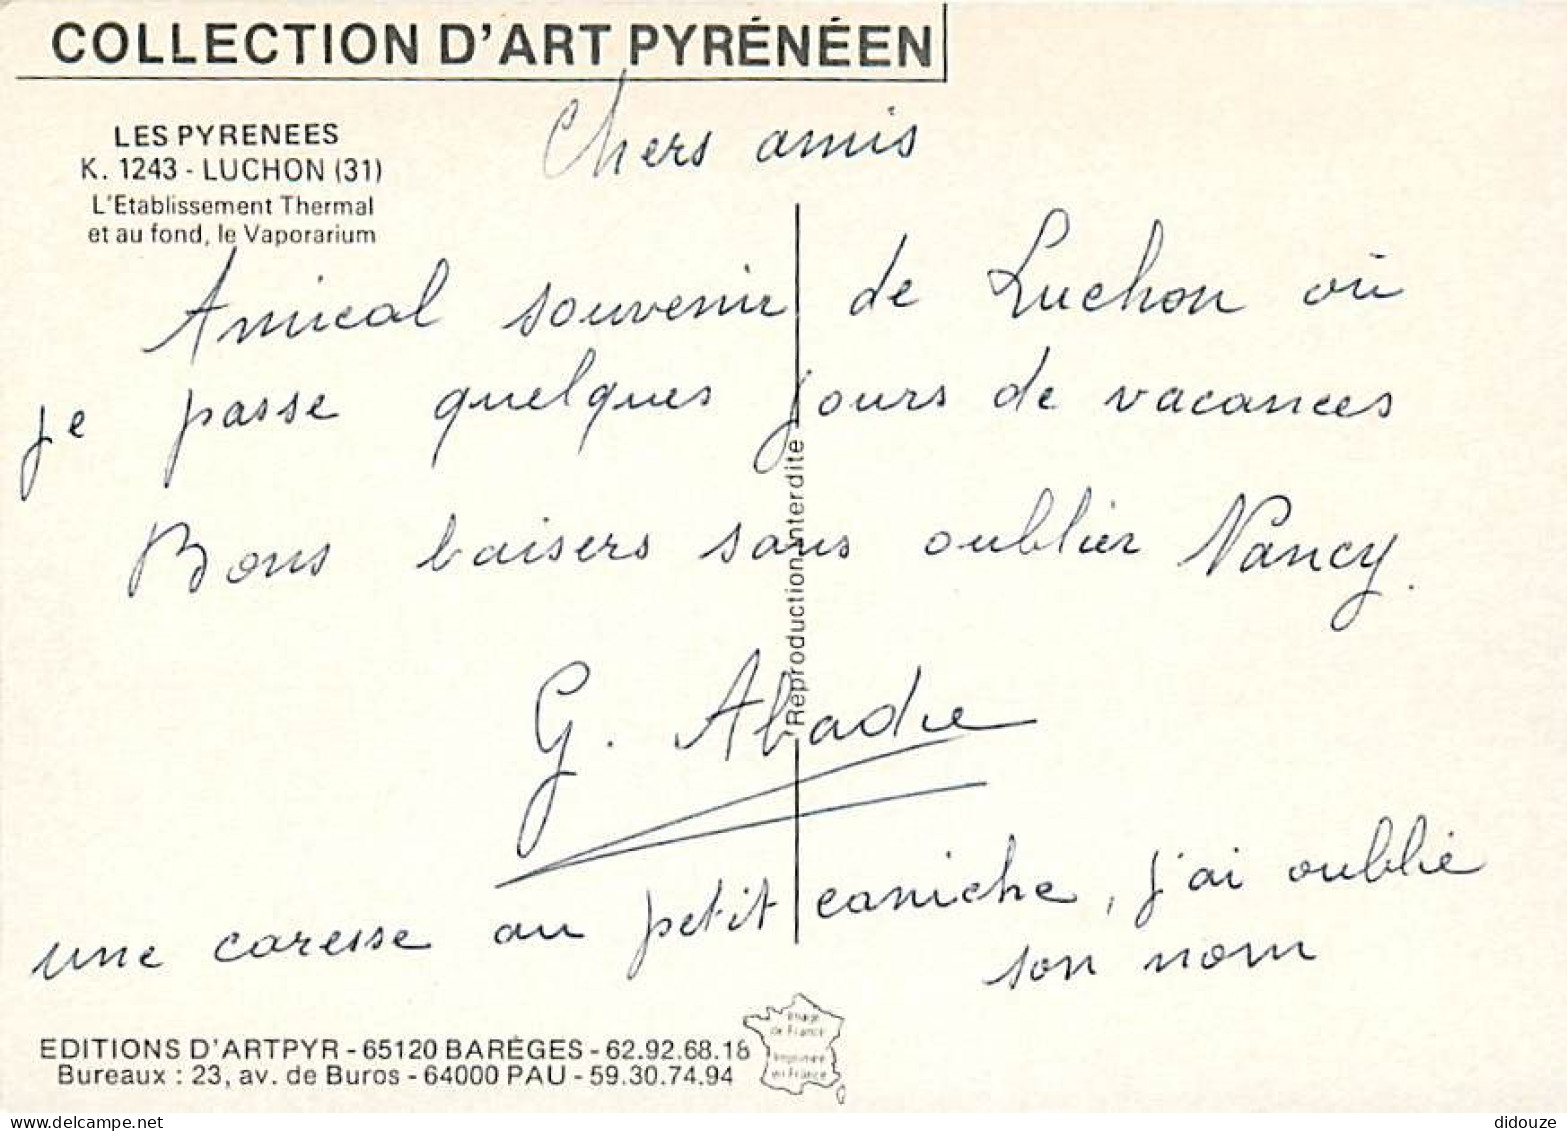 COLLECTION D'ART PYRÉNÉEN
LES PYRENEES
K. 1243 - LUCHON (31)
L'Etablissement Thermal
et au fond, le Vaporarium
Chers amis
Amical souvenir de Luchon où
je passe quelques jours de vacances
Bons baisers sans oublier Nancy.
G. Abadie
une caresse au petit caniche, j'ai oublié
son nom
Reproduction interdite
EDITIONS D'ARTPYR - 65120 BARÈGES - 62.92.68.18
Bureaux : 23, av. de Buros - 64000 PAU - 59.30.74.94
Image
de France
Imprimée
en France
didouze